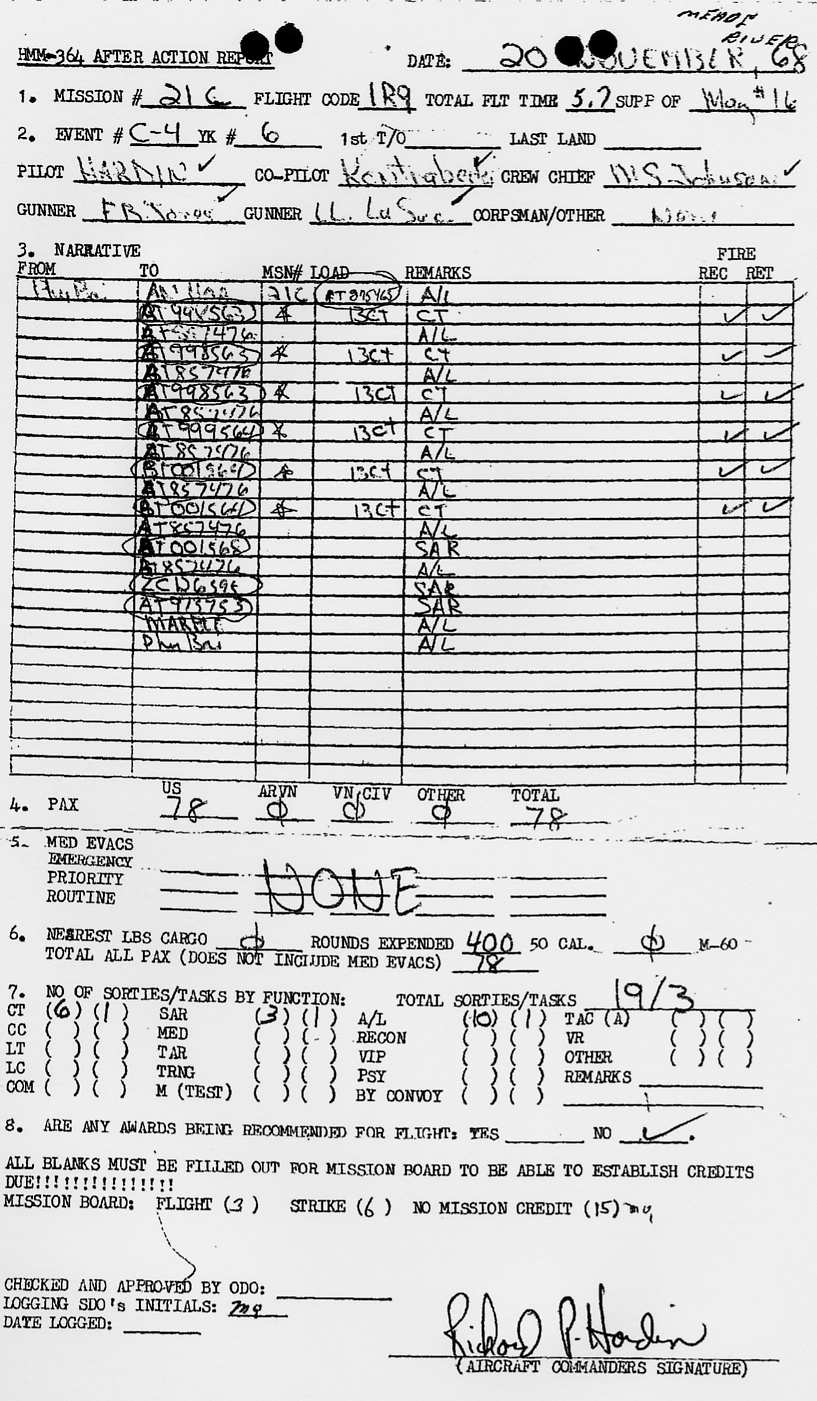 MEADE RIVER
HMM-364 AFTER ACTION REPORT DATE: 20 NOVEMBER, 68
1. MISSION # 21C FLIGHT CODE 1R9 TOTAL FLT TIME 5.7 SUPP OF #16
2. EVENT # C-4 YK # 6 1st T/O LAST LAND
PILOT HARDIN ✓ CO-PILOT ✓ CREW CHIEF M.S. Johnson ✓
GUNNER F.B. Jones ✓ GUNNER ✓ CORPSMAN/OTHER None
3. NARRATIVE FIRE
FROM TO MSN# LOAD REMARKS REC RET
Phu Bai AN HOA 21C AT875465 A/L
AT998563 * 13CT CT ✓ ✓
AT857476 A/L
AT998563 * 13CT CT ✓ ✓
AT857476 A/L
AT998563 * 13CT CT ✓ ✓
AT857476 A/L
AT999564 * 13CT CT ✓ ✓
AT857476 A/L
BT001564 * 13CT CT ✓ ✓
AT857476 A/L
BT001564 * 13CT CT ✓ ✓
AT857476 A/L
BT001568 SAR
AT857476 A/L
SAR
AT913953 SAR
MARBLE A/L
Phu Bai A/L
US ARVN VN CIV OTHER TOTAL
4. PAX 78 Ø Ø Ø 78
5. MED EVACS
EMERGENCY
PRIORITY NONE
ROUTINE
6. NEAREST LBS CARGO Ø ROUNDS EXPENDED 400 50 CAL. Ø M-60
TOTAL ALL PAX (DOES NOT INCLUDE MED EVACS) 78
7. NO OF SORTIES/TASKS BY FUNCTION: TOTAL SORTIES/TASKS 19/3
CT (6) (1) SAR (3) (1) A/L (10) (1) TAC (A) ( ) ( )
CC ( ) ( ) MED ( ) ( ) RECON ( ) ( ) VR ( ) ( )
LT ( ) ( ) TAR ( ) ( ) VIP ( ) ( ) OTHER ( ) ( )
LC ( ) ( ) TRNG ( ) ( ) PSY ( ) ( ) REMARKS
COM ( ) ( ) M (TEST) ( ) ( ) BY CONVOY ( ) ( )
8. ARE ANY AWARDS BEING RECOMMENDED FOR FLIGHT: YES NO ✓.
ALL BLANKS MUST BE FILLED OUT FOR MISSION BOARD TO BE ABLE TO ESTABLISH CREDITS
DUE!!!!!!!!!!!!!!!
MISSION BOARD: FLIGHT (3) STRIKE (6) NO MISSION CREDIT (15) mq
CHECKED AND APPROVED BY ODO:
LOGGING SDO's INITIALS: mq
DATE LOGGED:
Richard P. Hardin
(AIRCRAFT COMMANDERS SIGNATURE)